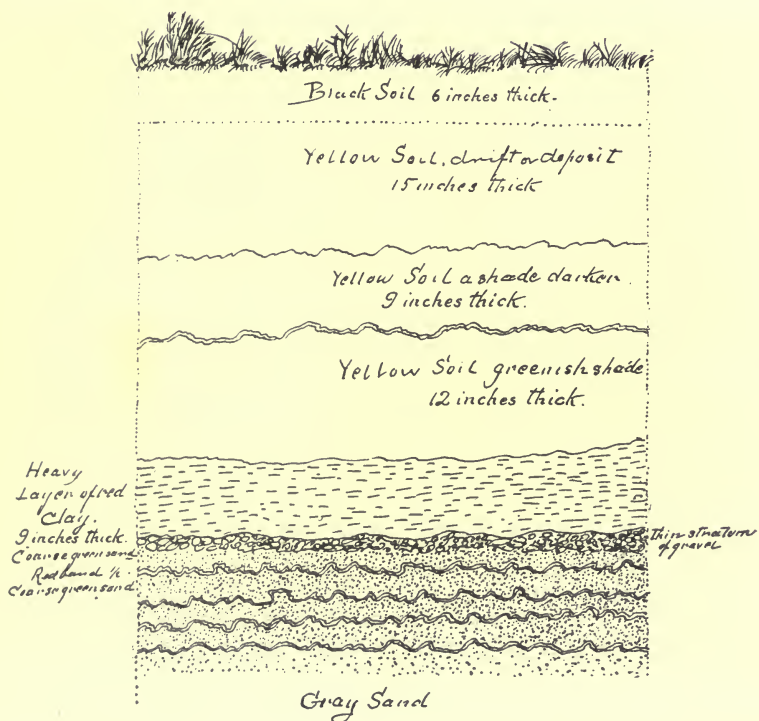 Black Soil 6 inches thick.
Yellow Soil, drift or deposit
15 inches thick
Yellow Soil a shade darker.
9 inches thick.
Yellow Soil greenish shade
12 inches thick.
Heavy
Layer of red
Clay.
9 inches thick.
Coarse green sand
Red band ½
Coarse green sand
thin stratum
of gravel
Gray Sand